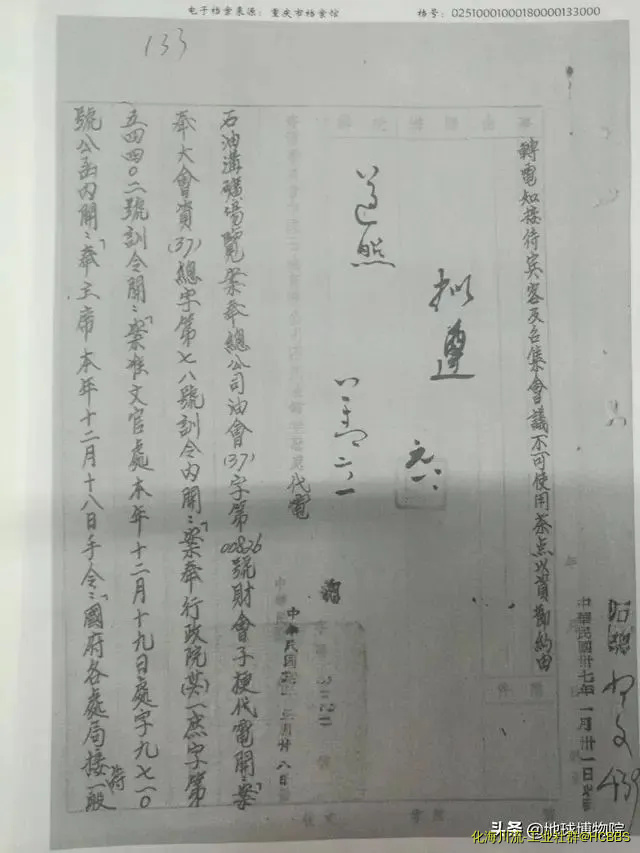 电子档案来源：重庆市档案馆 档号：02510001000180000133000
133
轉電知接待賓客及召集會議不可使用茶点以資節約由
中華民國卅七年一月卅一日
擬遵
遵照
代電
中華民國 月廿八日
石油溝礦場覽案奉總公司油會(37)字第00826號財會子梗代電開：「案
奉大會資(37)總字第七八號訓令內開：「案奉行政院 一庶字第
五四四〇二號訓令開：「案准文官處本年十二月十九日處字九七一〇
號公函內開：「奉主席本年十二月十八日手令：「國府各處局接待一般
头条 @地球博物院
化海川流-工业社群@HCBBS